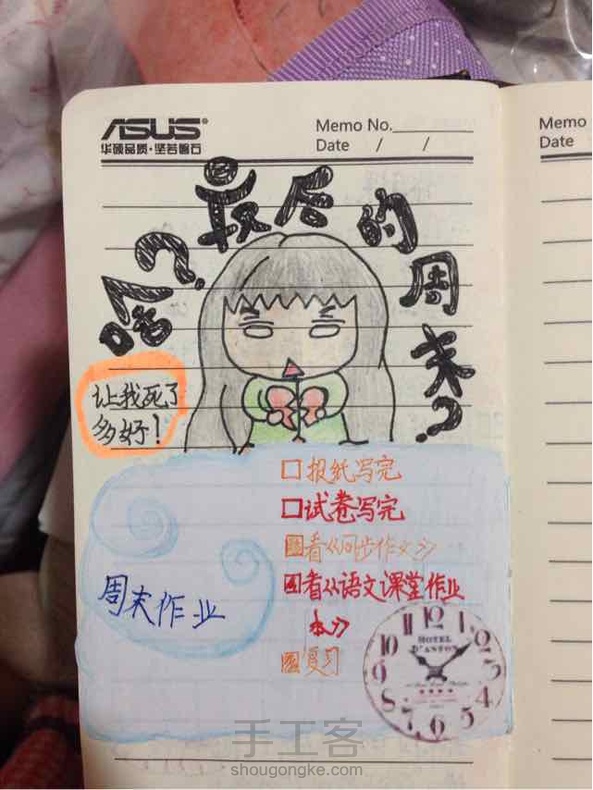 ASUS
华硕品质·坚若磐石
Memo No.
Date / /
Memo
Date
啥?最后的周末?
让我死了
多好!
周末作业
□报纸写完
□试卷写完
看《同步作文》
看《语文课堂作业
本》
复习
12 1 2 3 4 5 6 7 8 9 10 11
HOTEL
D'ANTON
手工客
shougongke.com